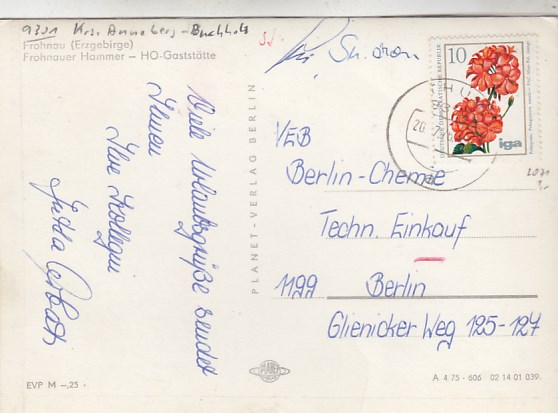 9301 Krs. Annaberg-Buchholz
Frohnau (Erzgebirge)
Frohnauer Hammer — HO-Gaststätte
Viele Urlaubsgrüße sendet
Ihnen
Ihre Kollegin
Jutta
PLANET-VERLAG BERLIN
10
DEUTSCHE DEMOKRATISCHE REPUBLIK
iga
VEB
Berlin-Chemie
Techn. Einkauf
1199 Berlin
Glienicker Weg 125-127
PLANET
EVP M —,25
A 4/75 - 606 02 14 01 039